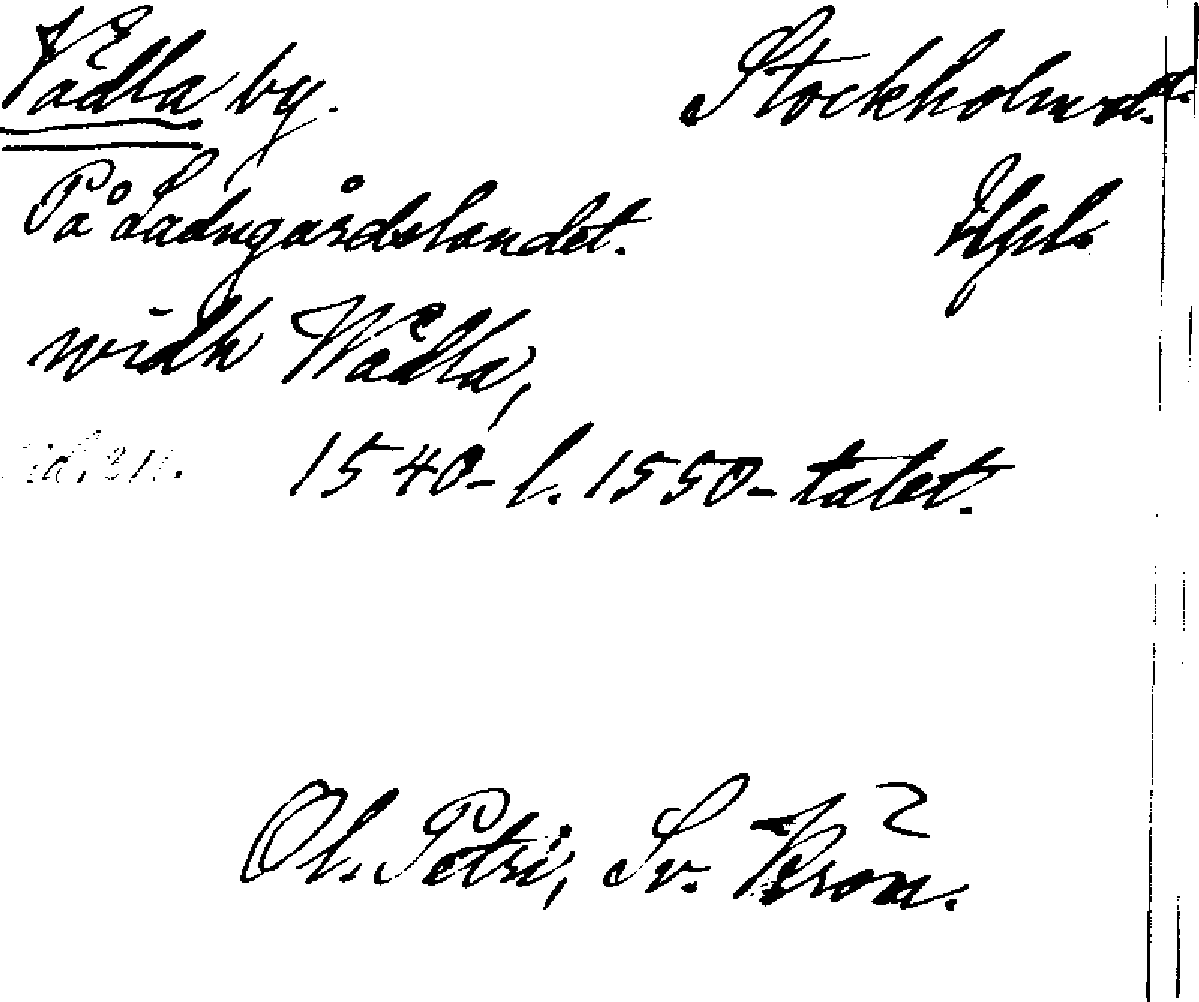 Vädla by. Stockholm st.
På Ladugårdslandet. Upl.
widh Wädla,
sid. 311. 1540- l. 1550-talet.
Ol. Petri, Sv. Krön.